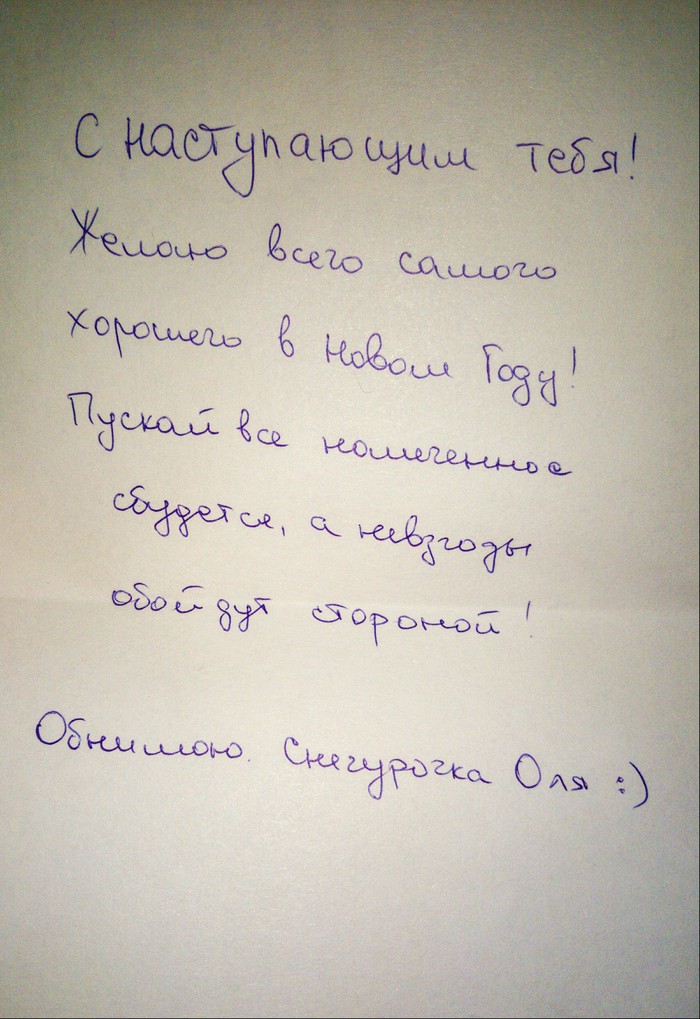 С наступающим тебя!
Желаю всего самого
хорошего в Новом Году!
Пускай все намеченное
сбудется, а невзгоды
обойдут стороной!
Обнимаю. Снегурочка Оля :)